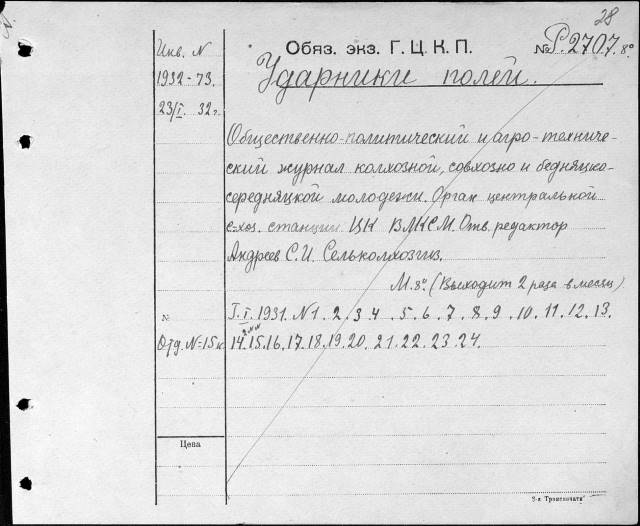 28
Инв. N
1932-73.
23/I. 32 г.
Обяз. экз. Г. Ц. К. П.
№ Р.2707. 8°
Ударники полей.
Общественно-политический и агро-техниче-
ский журнал колхозной, совхозно и бедняцко-
середняцкой молодежи. Орган центральной
с-хоз. станции ЦК ВЛКСМ. Отв. редактор
Андреев С. И. Сельколхозгиз.
М. 8°. (Выходит 2 раза в месяц)
№ I. I. 1931. N 1. 2. 3. 4. 5. 6. 7. 8. 9. 10. 11. 12. 13.
Отд. N=15 к. 14. 15. 16. 17. 18. 19. 20. 21. 22. 23. 24.
Цена